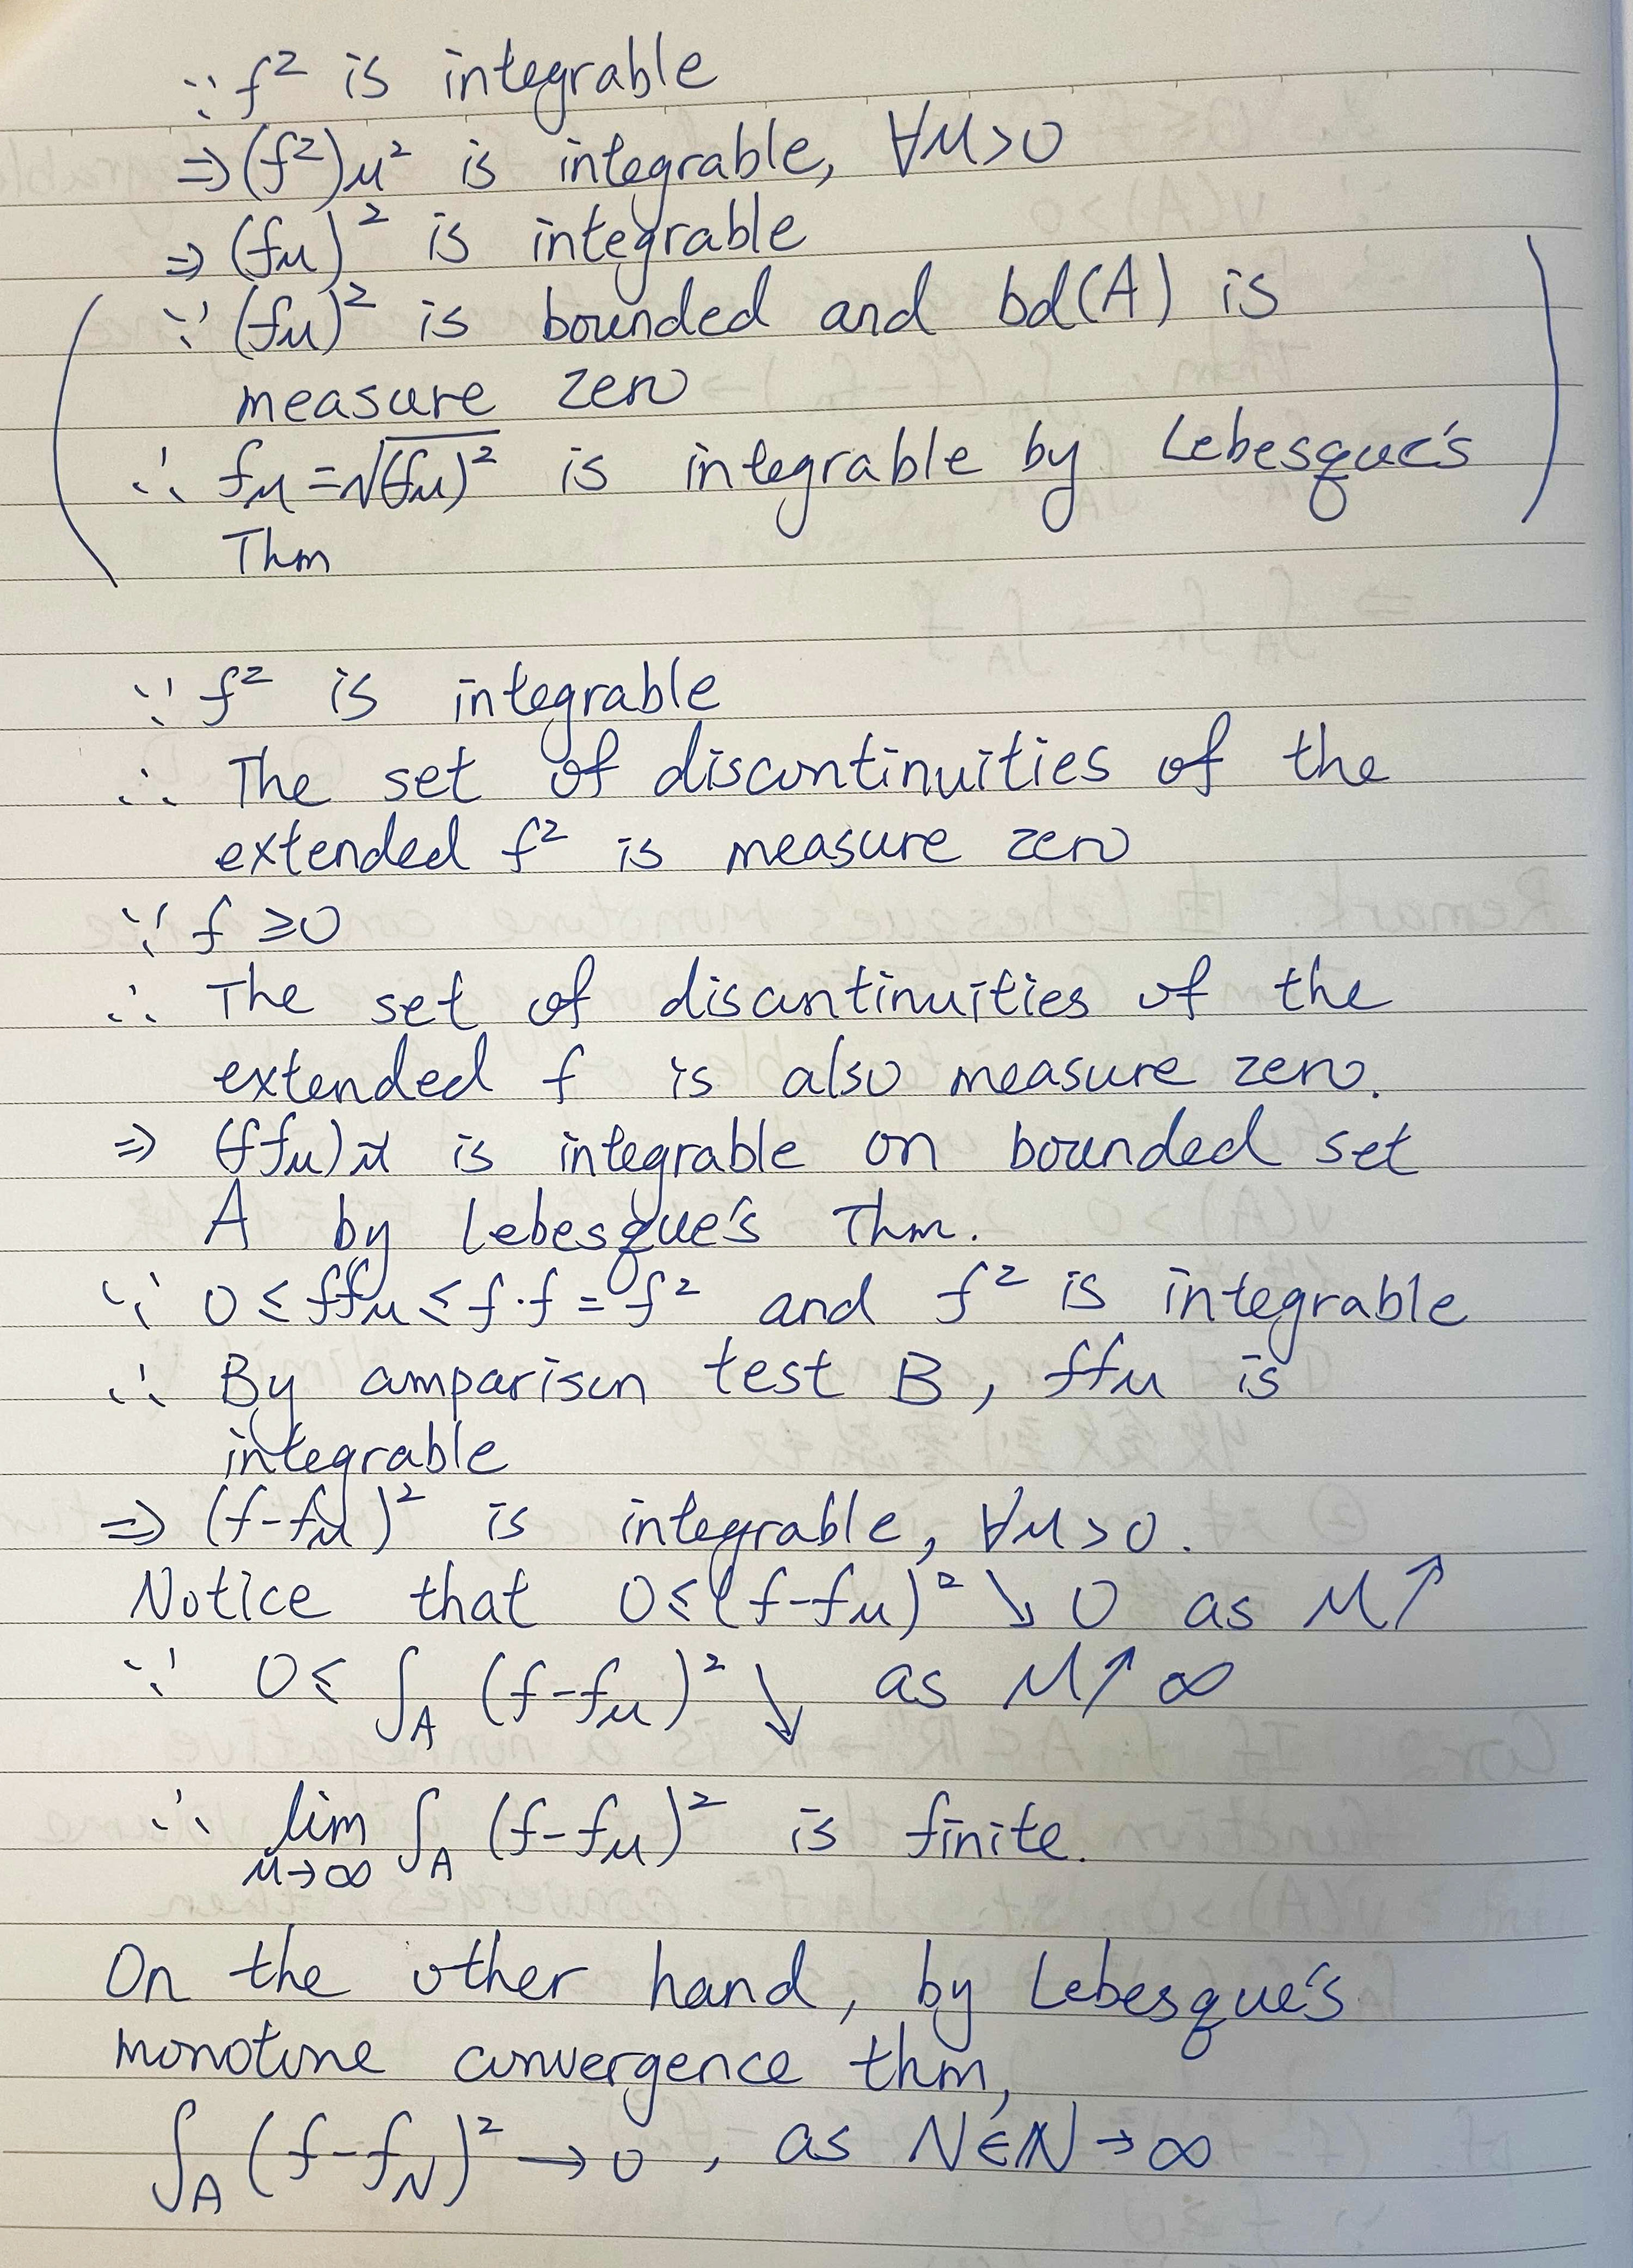 ∵ f² is integrable
⇒ (f²)_{M²} is integrable, ∀M>0
⇒ (f_M)² is integrable
∵ (f_M)² is bounded and bd(A) is
measure zero
∴ f_M = √(f_M)² is integrable by Lebesgue's
Thm
∵ f² is integrable
∴ The set of discontinuities of the
extended f² is measure zero
∵ f ≥ 0
∴ The set of discontinuities of the
extended f is also measure zero.
⇒ (ff_M)_{} is integrable on bounded set
A by Lebesgue's Thm.
∵ 0 ≤ ff_M ≤ f·f = f² and f² is integrable
∴ By comparison test B, ff_M is
integrable
⇒ (f-f_M)² is integrable, ∀M>0.
Notice that 0 ≤ (f-f_M)² ↘ 0 as M↑
∵ 0 ≤ ∫_A (f-f_M)² ↘ as M↑∞
∴ lim_{M→∞} ∫_A (f-f_M)² is finite.
On the other hand, by Lebesgue's
monotone convergence thm,
∫_A (f-f_N)² → 0, as N∈ℕ→∞